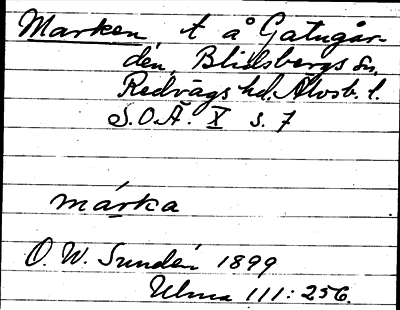 Marken, t å Gatugår-
den, Blidsbergs sn,
Redvägs hd. Älvsb. l.
S.O.Ä. X s. 7
márka
O. W. Sundén 1899
Ulma 111:256.